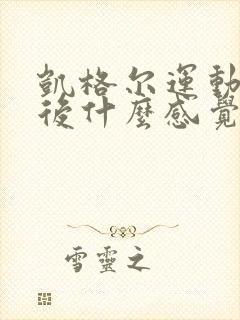 凱格尔運動
後什麼感覺
雪靈之